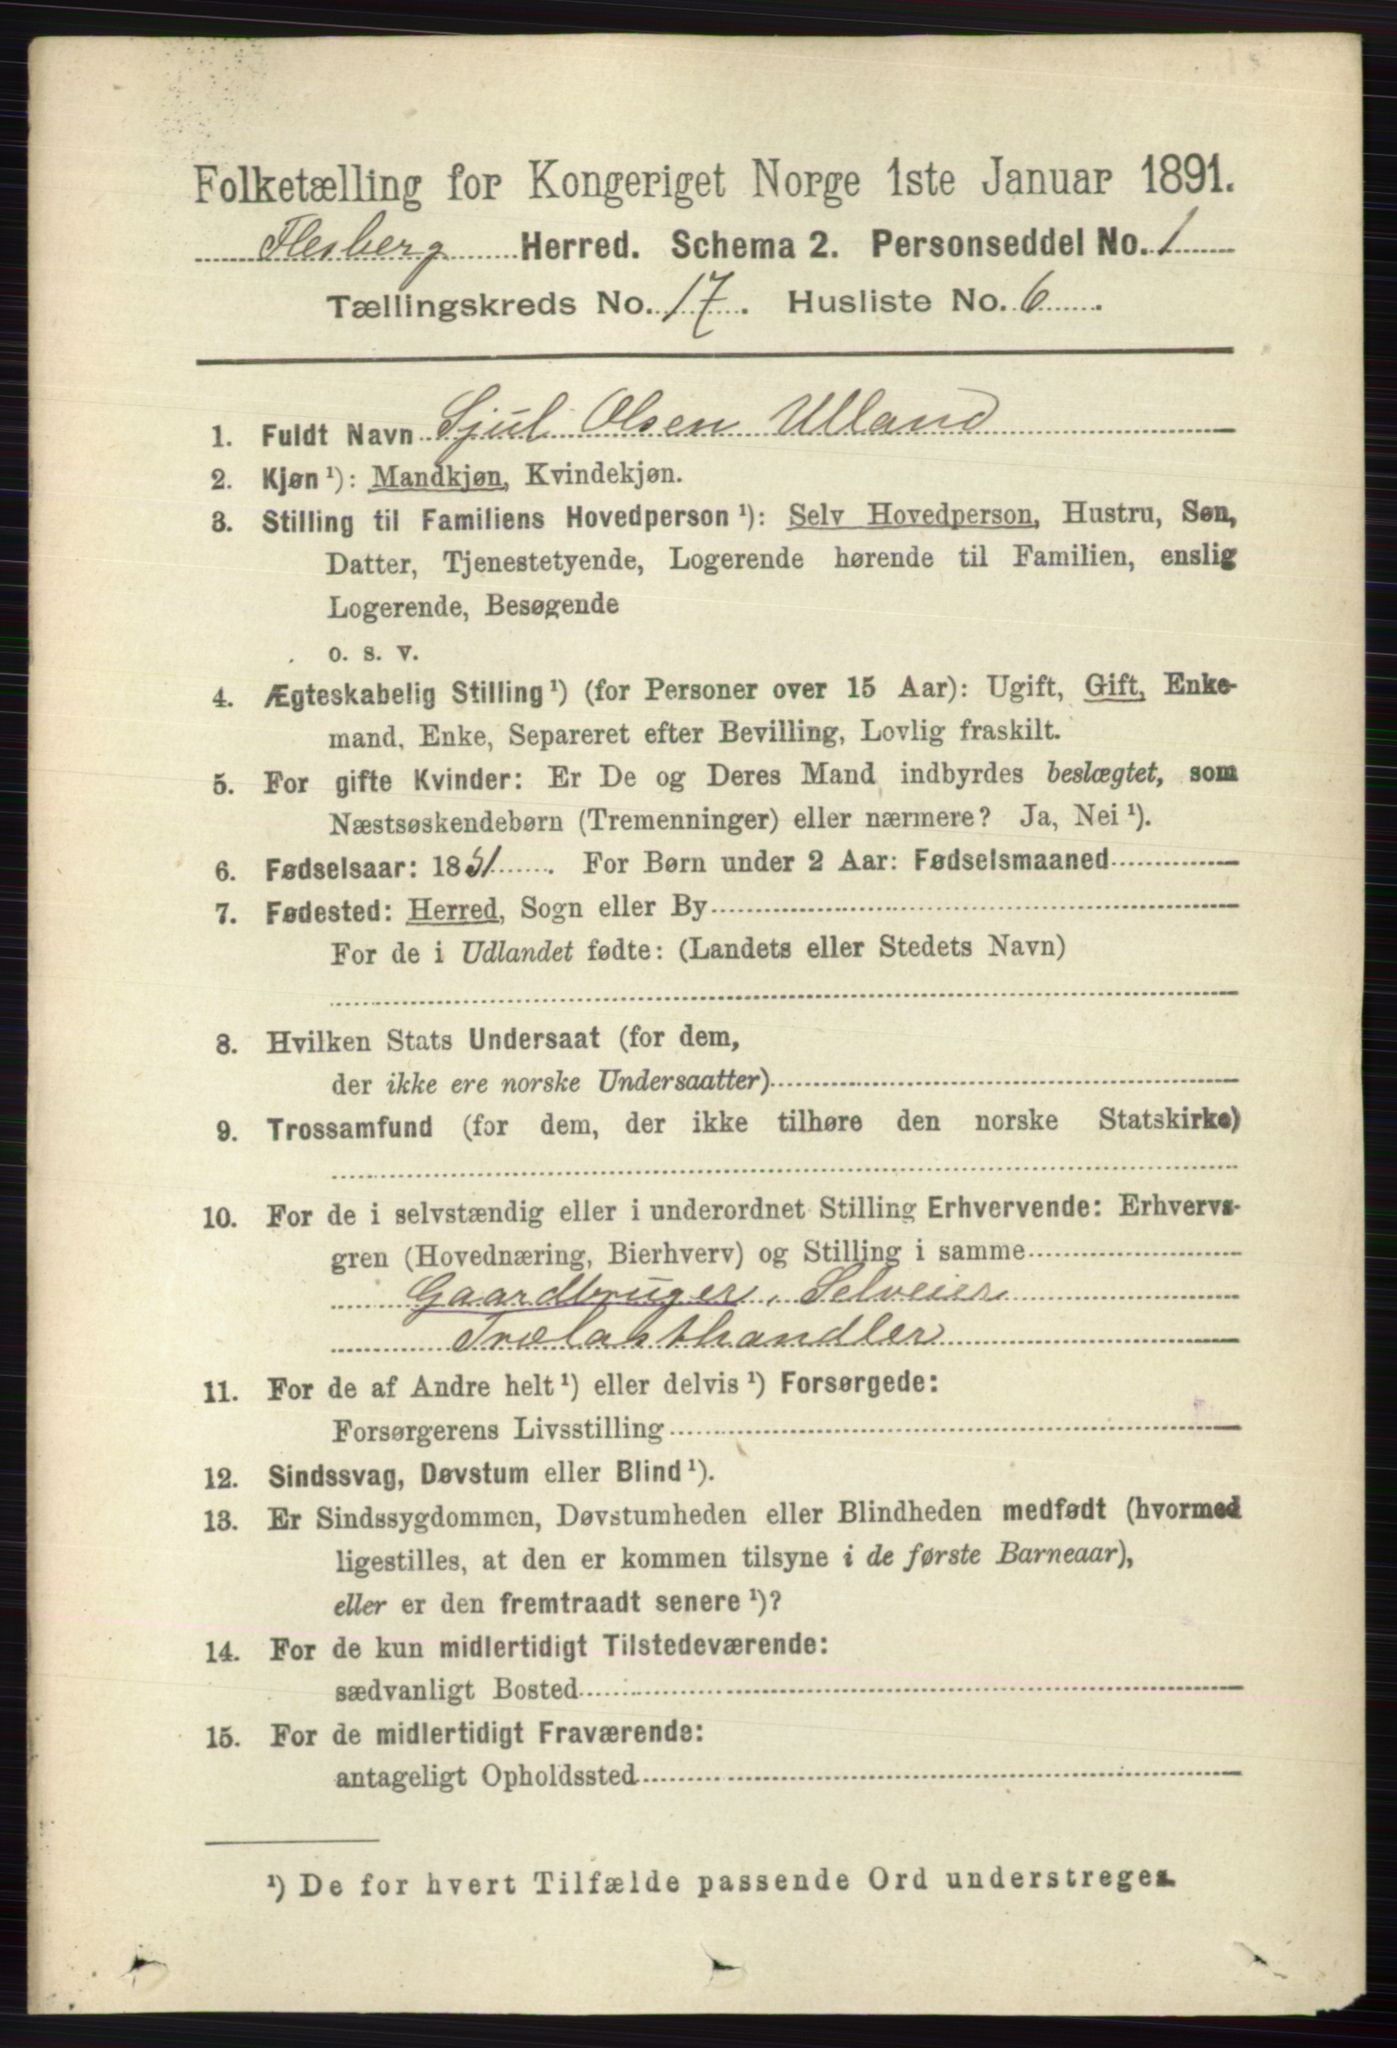 Folketælling for Kongeriget Norge 1ste Januar 1891.
Flesberg Herred. Schema 2. Personseddel No. 1
Tællingskreds No. 17. Husliste No. 6.
1. Fuldt Navn Sjul Olsen Ulland
2. Kjøn ¹): Mandkjøn, Kvindekjøn.
3. Stilling til Familiens Hovedperson ¹): Selv Hovedperson, Hustru, Søn,
Datter, Tjenestetyende, Logerende hørende til Familien, enslig
Logerende, Besøgende
o. s. v.
4. Ægteskabelig Stilling ¹) (for Personer over 15 Aar): Ugift, Gift, Enke-
mand, Enke, Separeret efter Bevilling, Lovlig fraskilt.
5. For gifte Kvinder: Er De og Deres Mand indbyrdes beslægtet, som
Næstsøskendebørn (Tremenninger) eller nærmere? Ja, Nei ¹).
6. Fødselsaar: 1831. For Børn under 2 Aar: Fødselsmaaned
7. Fødested: Herred, Sogn eller By
For de i Udlandet fødte: (Landets eller Stedets Navn)
8. Hvilken Stats Undersaat (for dem,
der ikke ere norske Undersaatter)
9. Trossamfund (for dem, der ikke tilhøre den norske Statskirke)
10. For de i selvstændig eller i underordnet Stilling Erhvervende: Erhvervs-
gren (Hovednæring, Bierhverv) og Stilling i samme
Gaardbruger, Selveier
Trælasthandler
11. For de af Andre helt ¹) eller delvis ¹) Forsørgede:
Forsørgerens Livsstilling
12. Sindssvag, Døvstum eller Blind ¹).
13. Er Sindssygdommen, Døvstumheden eller Blindheden medfødt (hvormed
ligestilles, at den er kommen tilsyne i de første Barneaar),
eller er den fremtraadt senere ¹)?
14. For de kun midlertidigt Tilstedeværende:
sædvanligt Bosted
15. For de midlertidigt Fraværende:
antageligt Opholdssted
¹) De for hvert Tilfælde passende Ord understreges.